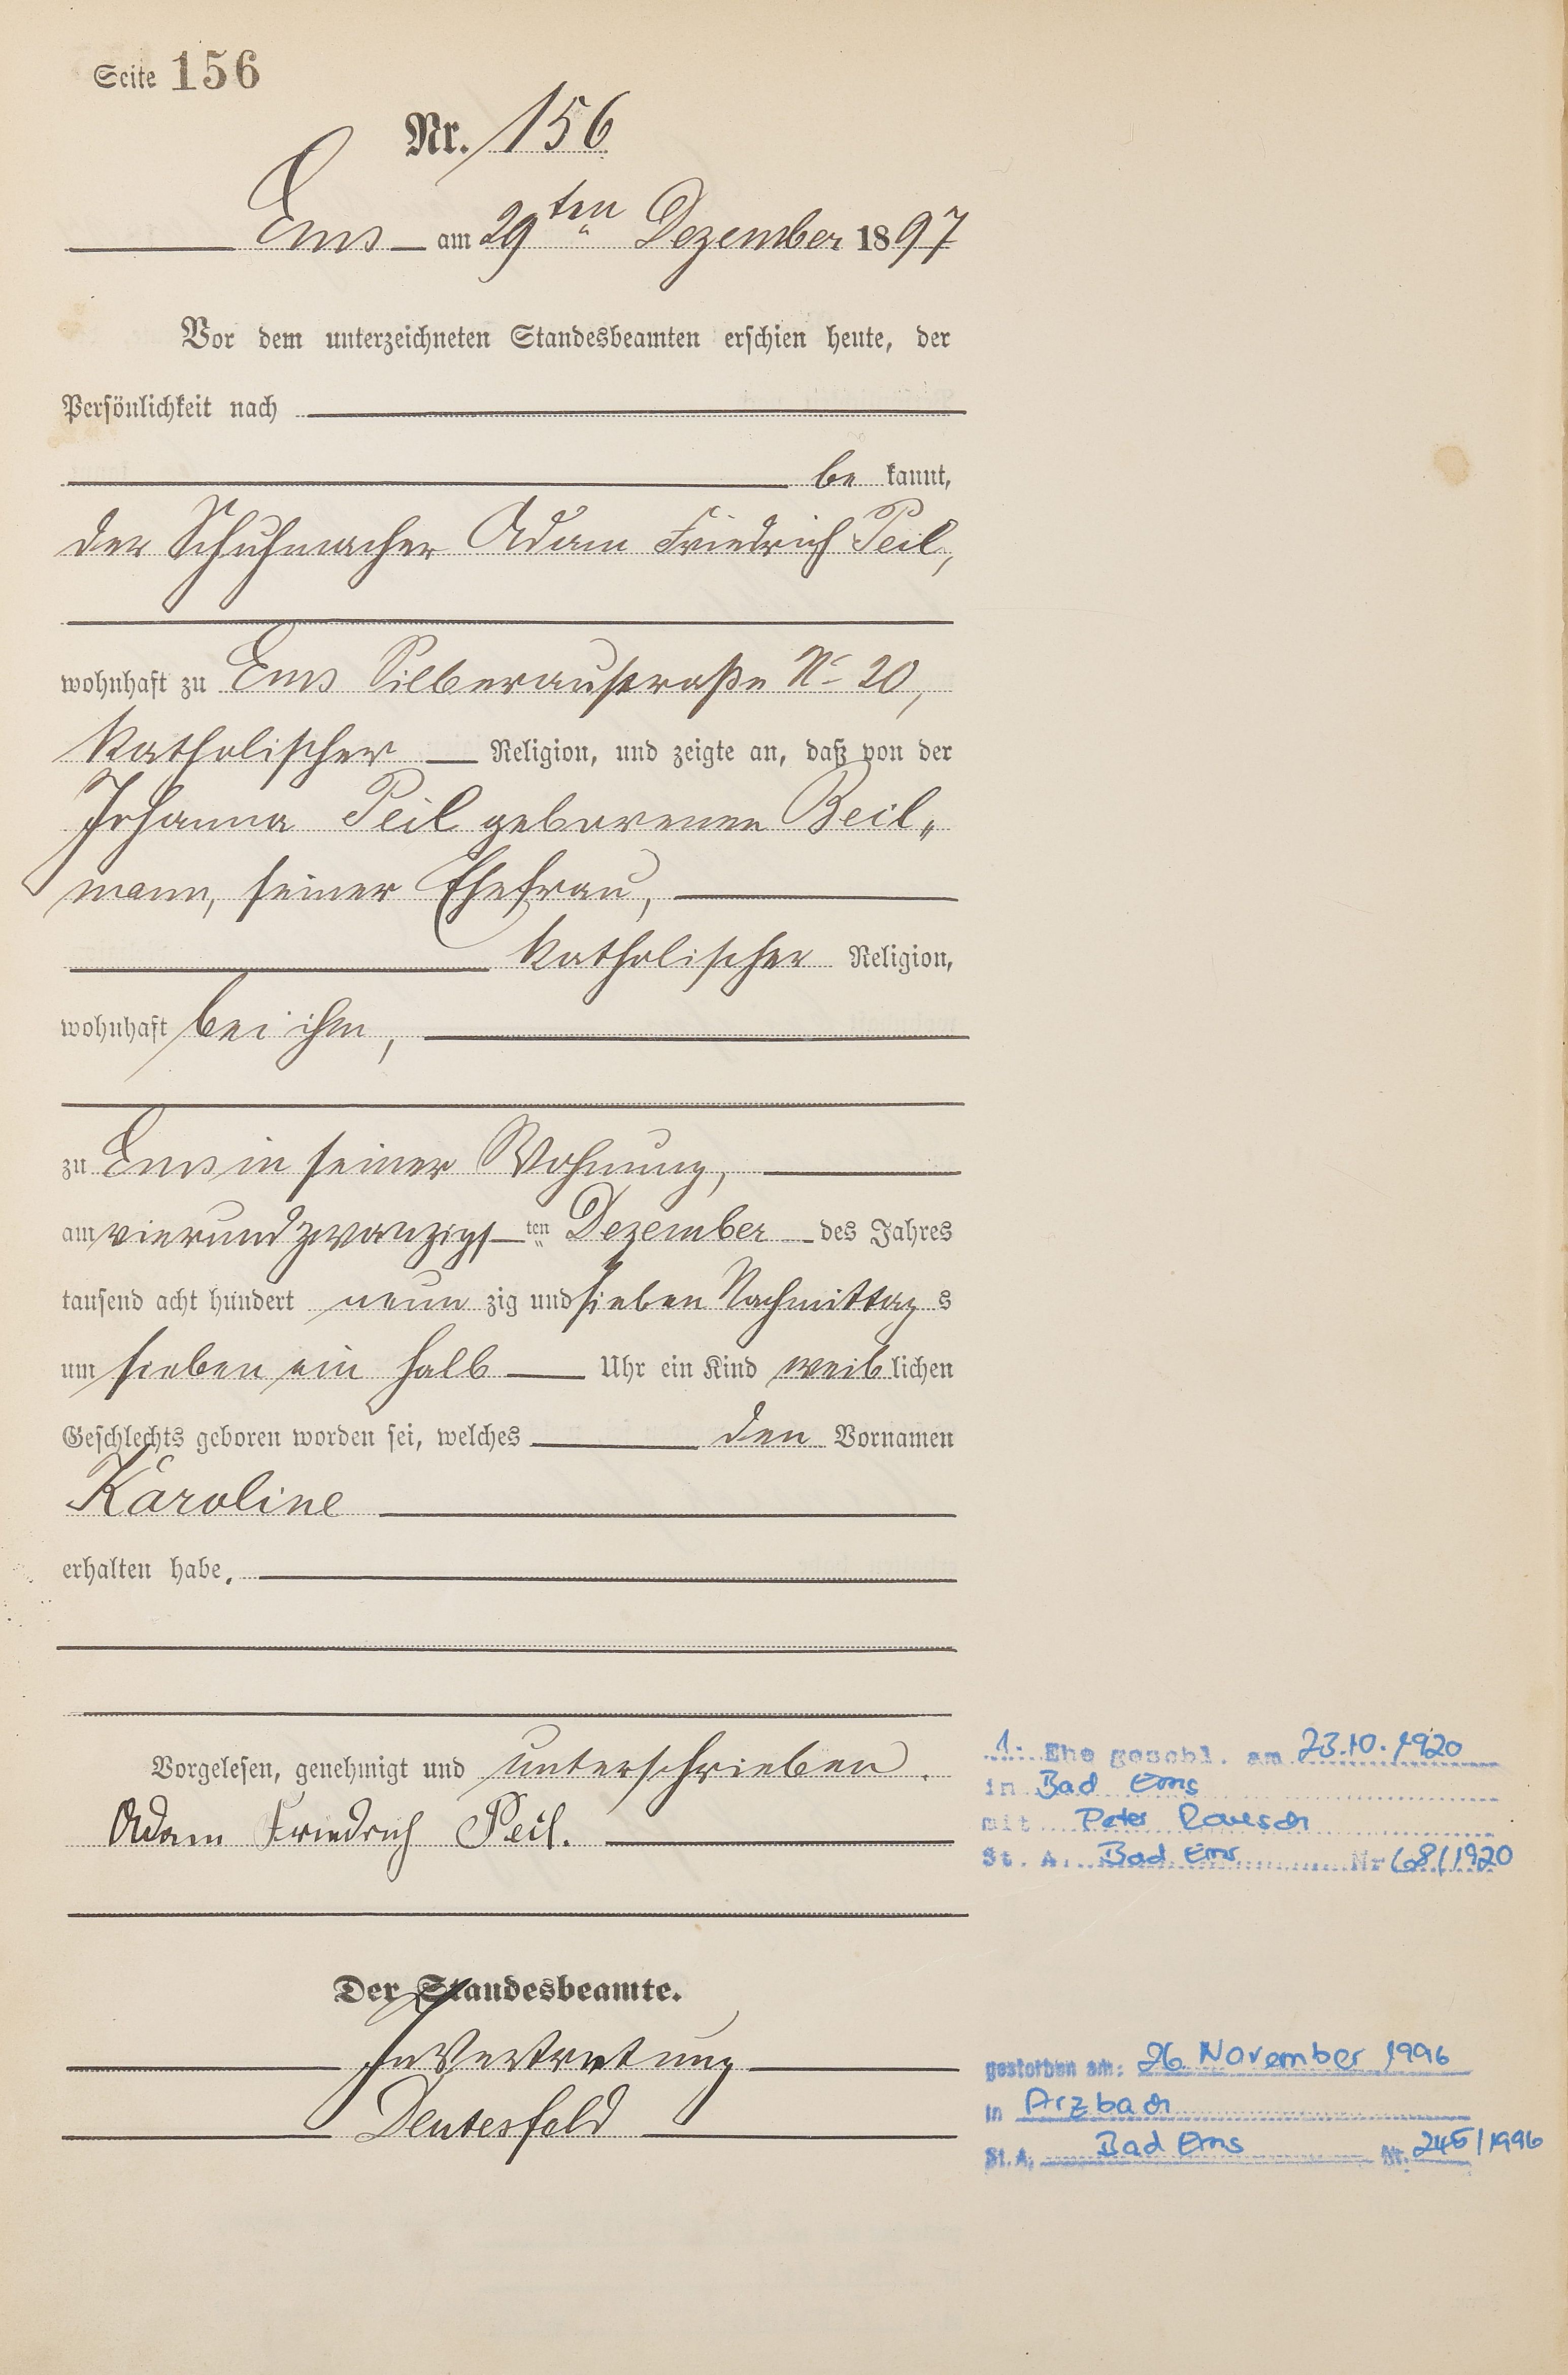 Seite 156
Nr. 156
Ems am 29ten Dezember 1897
Vor dem unterzeichneten Standesbeamten erschien heute, der
Persönlichkeit nach
be kannt,
der Schuhmacher Adam Friedrich Peil,
wohnhaft zu Ems Silberaustraße No 20,
katholischer Religion, und zeigte an, daß von der
Johanna Peil geborenen Beil„
mann, seiner Ehefrau,
katholischer Religion,
wohnhaft bei ihm,
zu Ems in seiner Wohnung,
am vierundzwanzigsten Dezember des Jahres
tausend acht hundert neun zig und sieben Nachmittag s
um sieben ein halb Uhr ein Kind weiblichen
Geschlechts geboren worden sei, welches den Vornamen
Karoline
erhalten habe.
Vorgelesen, genehmigt und unterschrieben.
Adam Friedrich Peil.
Der Standesbeamte.
In Vertretung
1. Ehe geschl. am 23.10.1920
in Bad Ems
mit Peter
St. A. Bad Ems Nr 68/1920
gestorben am: 26 November 1996
in Arzbach
St. A. Bad Ems Nr. 245/1996